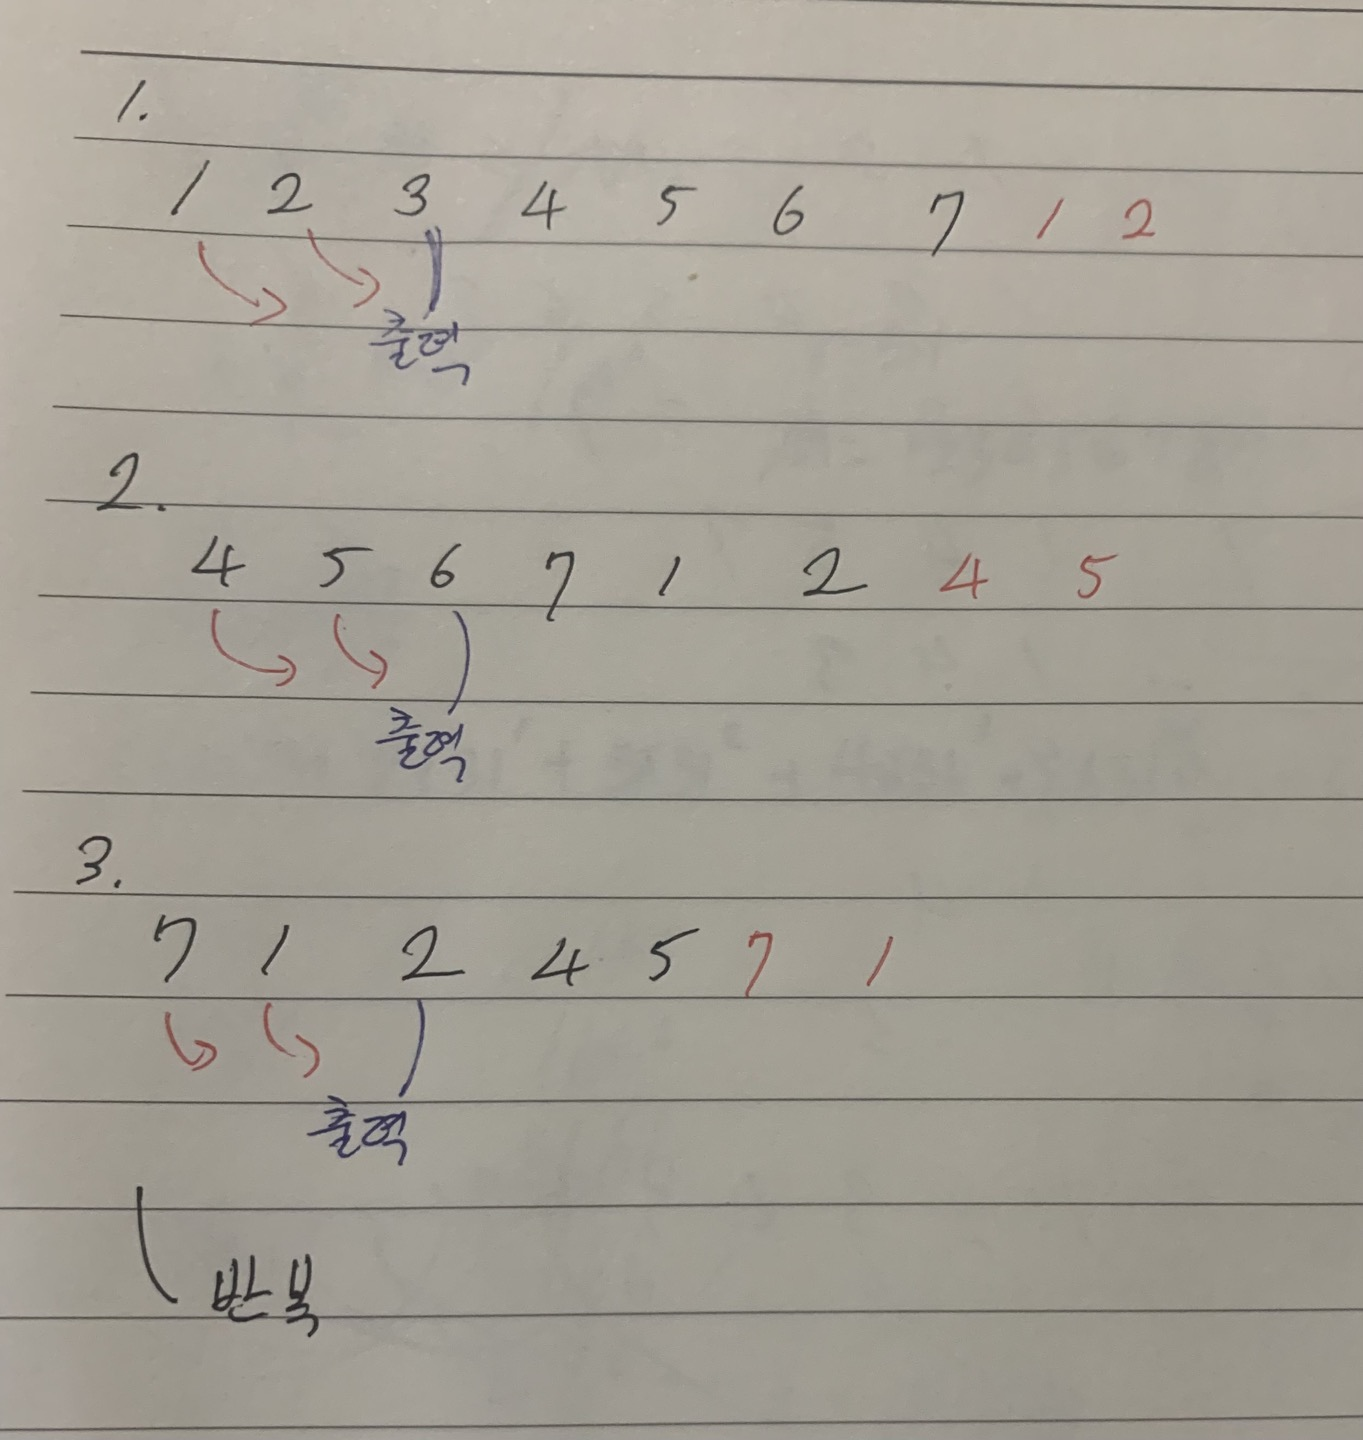 1.
1 2 3 4 5 6 7 1 2
출력
2.
4 5 6 7 1 2 4 5
출력
3.
7 1 2 4 5 7 1
출력
반복